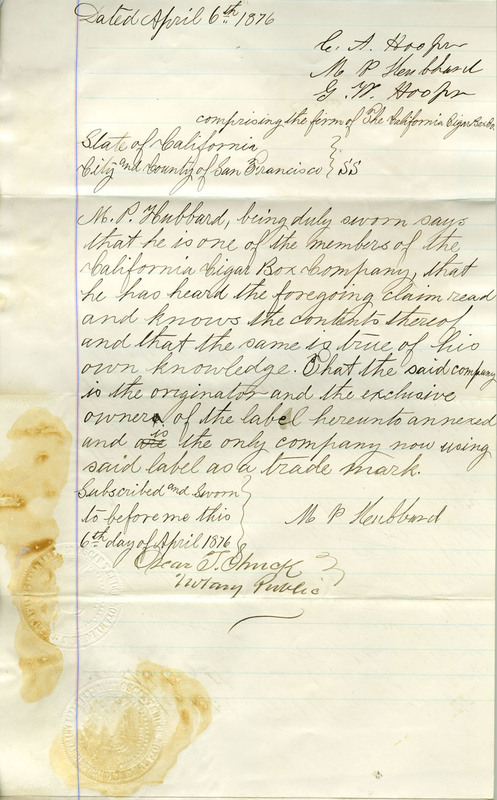 Dated April 6th 1876
C. A. Hooper
M. P. Hubbard
G. W. Hooper
comprising the firm of The California Cigar Box Co
State of California
City and County of San Francisco } SS
M. P. Hubbard, being duly sworn says
that he is one of the members of the
California Cigar Box Company, that
he has heard the foregoing claim read
and knows the contents thereof
and that the same is true of his
own knowledge. That the said company
is the originator and the exclusive
owner of the label hereunto annexed
and is the only company now using
said label as a trade mark.
Subscribed and Sworn
to before me this
6th day of April 1876
M. P. Hubbard
Oscar T. Shuck
Notary Public